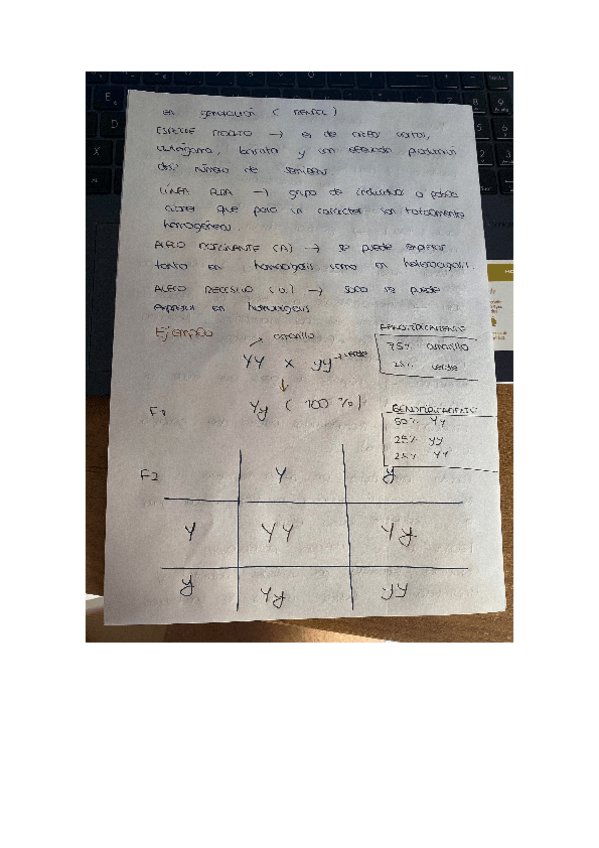 en generación (MENDEL)
ESPECIE MODELO → es de ciclos cortos,
autógama, barata y con elevado
número de semillas
LÍNEA PURA → grupo de individuos o
que para un carácter son totalmente
homogéneos.
ALELO DOMINANTE (A) → se puede expresar
tanto en homocigosis como en heterocigosis.
ALELO RECESIVO (a) → solo se puede
expresar en homocigosis
Ejemplo
→ amarillo
YY x yy → verde
F1 Yy (100%)
FENOTÍPICAMENTE
75% amarillo
25% verde
GENOTÍPICAMENTE
50% Yy
25% yy
25% YY
F2 Y y
Y YY Yy
y Yy yy